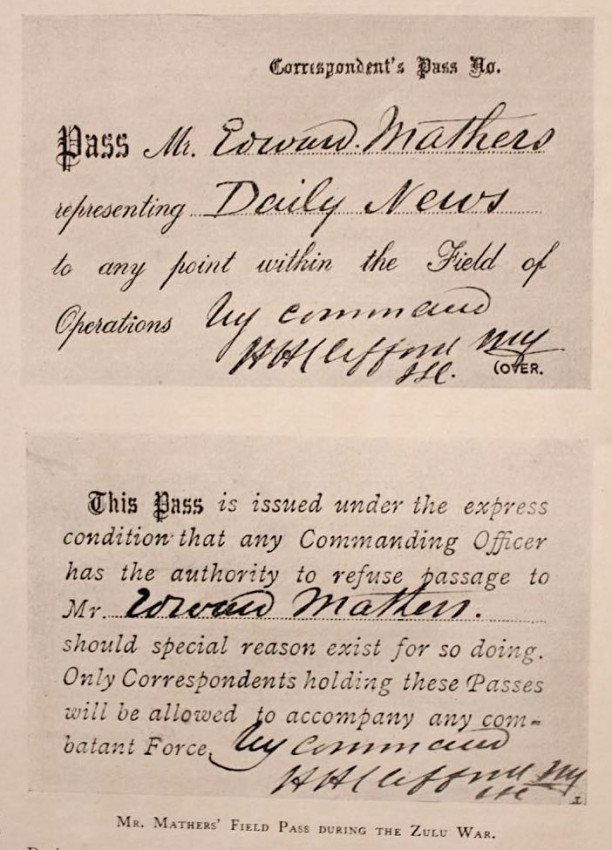 Correspondent's Pass No.
Pass Mr. Edward Mathers
representing Daily News
to any point within the Field of
Operations By command
H H Clifford
(OVER.
This Pass is issued under the express
condition that any Commanding Officer
has the authority to refuse passage to
Mr. Edward Mathers.
should special reason exist for so doing.
Only Correspondents holding these Passes
will be allowed to accompany any com-
batant Force. By command
H H Clifford
MR. MATHERS' FIELD PASS DURING THE ZULU WAR.